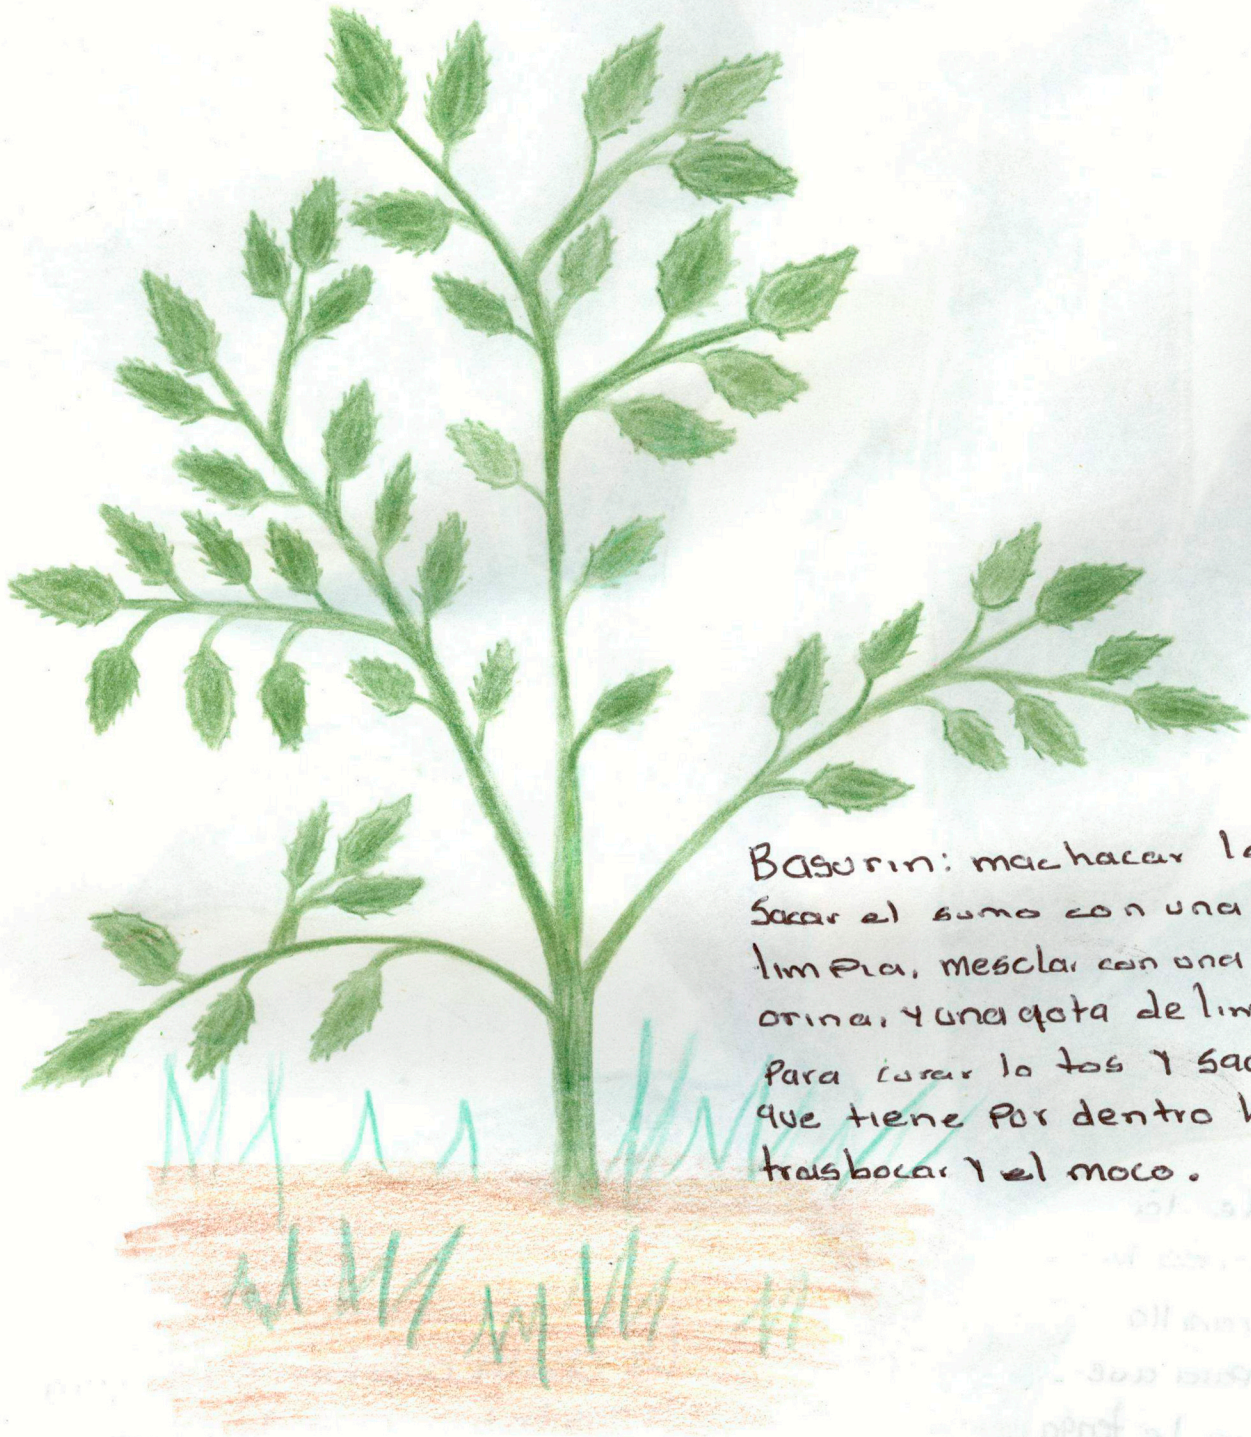 Basurin: machacar
Sacar el sumo con una
limpia, mesclar con una
orina, y una gota de
Para curar la tos y
que tiene Por dentro
trasbocar y el moco.